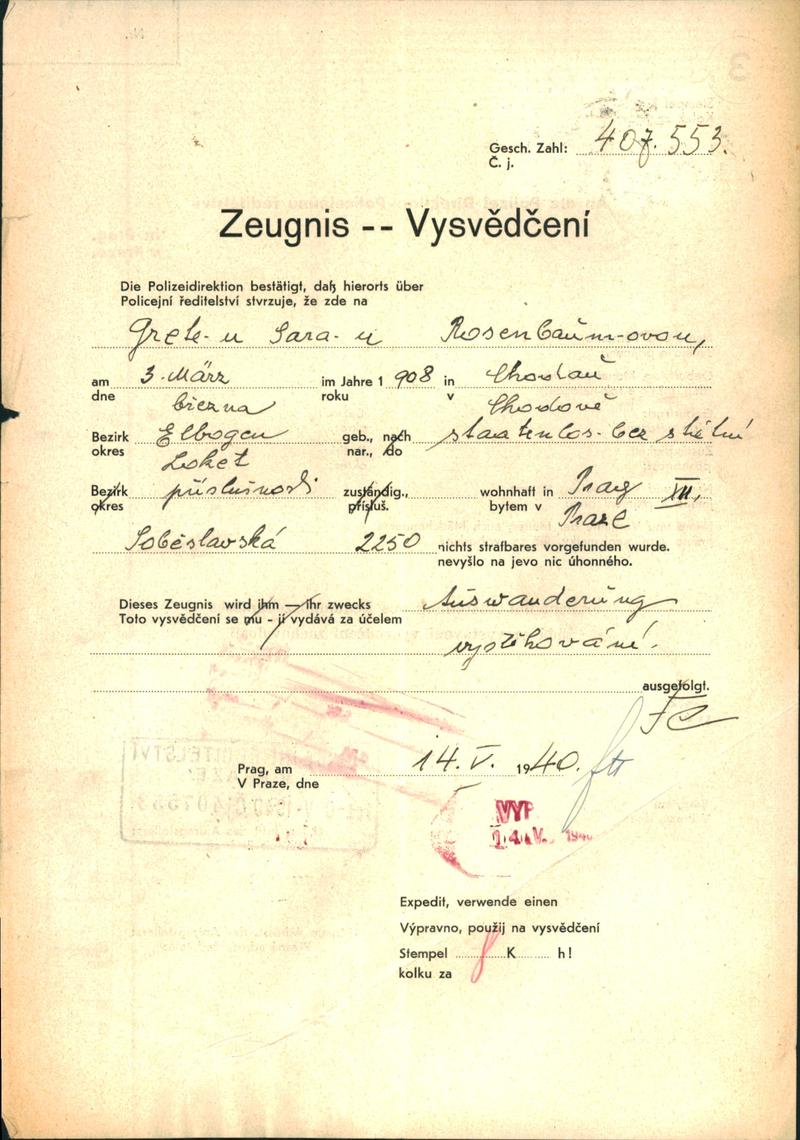 Gesch. Zahl: 407.553.
Č. j.
Zeugnis -- Vysvědčení
Die Polizeidirektion bestätigt, daß hierorts über
Policejní ředitelství stvrzuje, že zde na
Grete-u Sara-u Rosenbaum-ovou,
am 3. März im Jahre 1 908 in Chodau
dne března roku v Chodově
Bezirk Elbogen geb., nach staatenlos- bez státní
okres Loket nar., do
Bezirk příslušnosti zuständig., wohnhaft in Prag XII,
okres přísluš. bytem v Praze
Soběslavská 2250 nichts strafbares vorgefunden wurde.
nevyšlo na jevo nic úhonného.
Dieses Zeugnis wird ihm — ihr zwecks Auswanderung
Toto vysvědčení se mu - jí vydává za účelem
vystěhování.
ausgefolgt.
Prag, am 14. V. 1940.
V Praze, dne
VYP
14. V. 1940
Expedit, verwende einen
Výpravno, použij na vysvědčení
Stempel K h!
kolku za